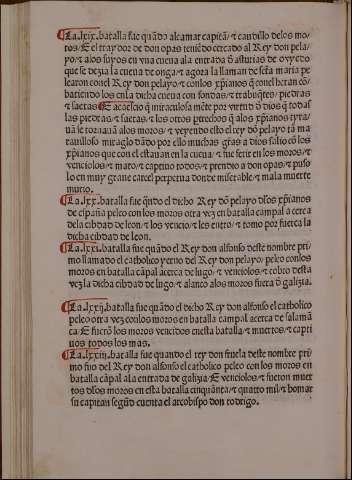 ¶La .lxix. batalla fue quãdo alcamar capitã / & caudillo delos mo/
ros / E el traydor de don opas teniẽdo cercado al Rey don pela/
yo / & alos suyos en vna cueua ala entrada ð asturias de ouyedo
que se dezia la cueua de onga / & agora la llaman de sc̃a maria pe
learon conel Rey don pelayo / & conlos xp̃ianos q̃ conel heran cõ/
batiendo los enla dicha cueua con fondas / & trabuq̃tes / piedras
& saetas ¶E acaescio q̃ miraculosa mẽte por virtud ð dios q̃ todas
las piedras / & saetas / & los otros ptrechos q̃ alos xp̃ianos tyra/
uã se tornauã alos moros / & veyendo esto el rey dõ pelayo tã ma
rauilloso miraglo dãdo por ello muchas gr̃as a dios salio cõ los
xp̃ianos que con el estauan en la cueua / & fue ferir en los moros / &
venciolos / & mato / & catiuo todos / & prendio a don opas / & puso
lo en muy graue carcel perpetua donde miserable / & mala muerte
murio.
¶La .lxx. batalla fue q̃ndo el dicho Rey dõ pelayo dl̃os xp̃ianos
de españa peleo con los moros otra vez en batalla campal a cerca
dela cibdad de leon / & los vencio / & les entro / & tomo por fuerca la
dicha cibdad de leon.
¶La .lxxi. batalla fue quãdo el Rey don alfonso deste nombre pri/
mo llamado el catholico yerno del Rey don pelayo / peleo conlos
moros en batalla cãpal acerca de lugo / & venciolos / & cobro desta
vez la dicha cibdad de lugo / & alanco alos moros fuera ð galizia.
¶La .lxxij. batalla fue quãdo el dicho Rey don alfonso el catholico
peleo otra vez conlos moros en batalla campal acerca de salamã
ca E fuerõ los moros vencidos enesta batalla / & muertos / & capti
uos todos los mas.
¶La .lxxiij. batalla fue quando el rey don fruela deste nombre pri/
mo fijo del Rey don alfonso el catholico peleo con los moros en
batalla cãpal ala entrada de galizia E venciolos / & fueron muer
tos dl̃os moros en esta batalla cinquãnta / & quatro mil / & domar
su capitan segũd cuenta el arcobispo don rodrigo.